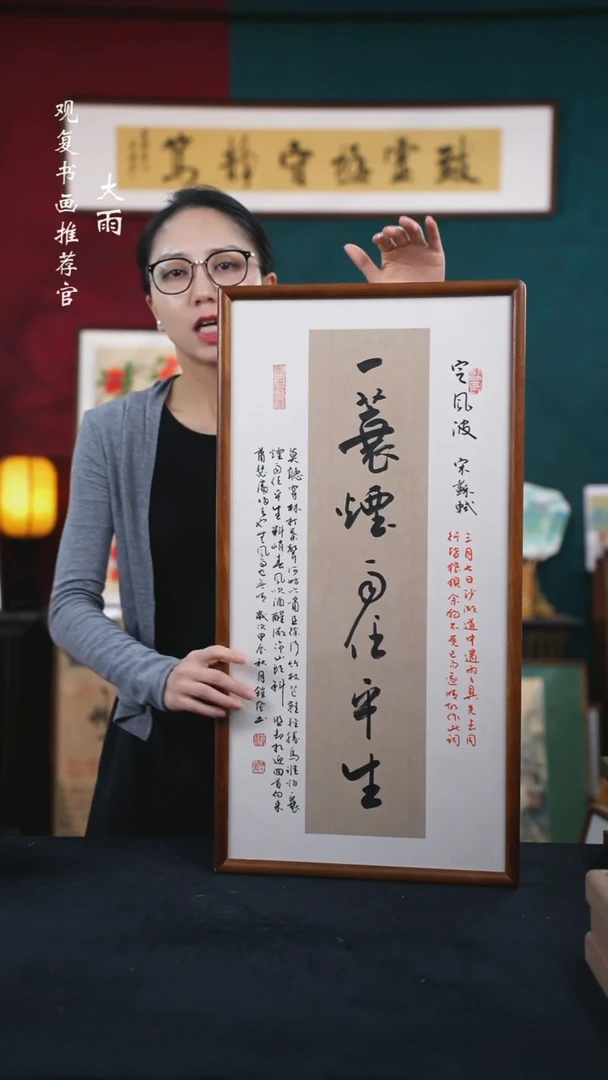 观复书画推荐官
大雨
致虚極守静篤
定风波 宋 蘇軾
三月七日沙湖道中遇雨雨具先去同
行皆狼狽余独不覺已而遂晴故作此词
一蓑煙雨任平生
莫聽穿林打葉聲何妨吟嘯且徐行竹杖芒鞋轻勝馬誰怕一蓑
煙雨任平生料峭春风吹酒醒微冷山頭斜照却相迎回首向来
萧瑟處归去也无风雨也无晴 歲次甲辰秋月